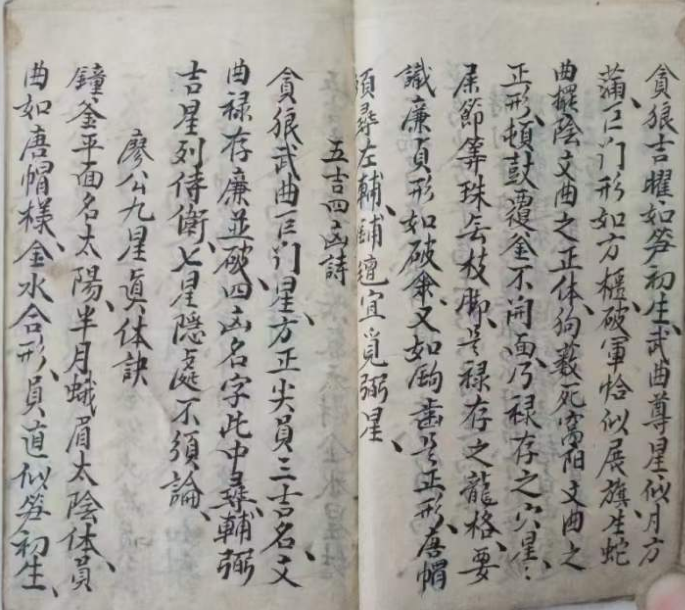 貪狼吉曜如笋初生、武曲尊星似月方
蒲、巨门形如方櫃、破軍恰似展旗、生蛇
曲擺陰文曲之正体、狗薮死窩阳文曲之
正形、頓鼓覆釜不開面、乃禄存之穴星、
節等珠去枝脚、是禄存之龍格、要
識廉貞形如破傘、又如鋸齒是正形、唐帽
須尋左輔、鋪氊宜覓弼星、
五吉四凶詩
貪狼武曲巨门星、方正尖員三吉名、文
曲禄存廉並破、四凶名字此中尋、輔弼
吉星列侍衛、七星隱處不須論、
廖公九星真体訣
鐘釜平面名太陽、半月蛾眉太陰体、員
曲如唐帽様、金水合形、員直似笋初生、